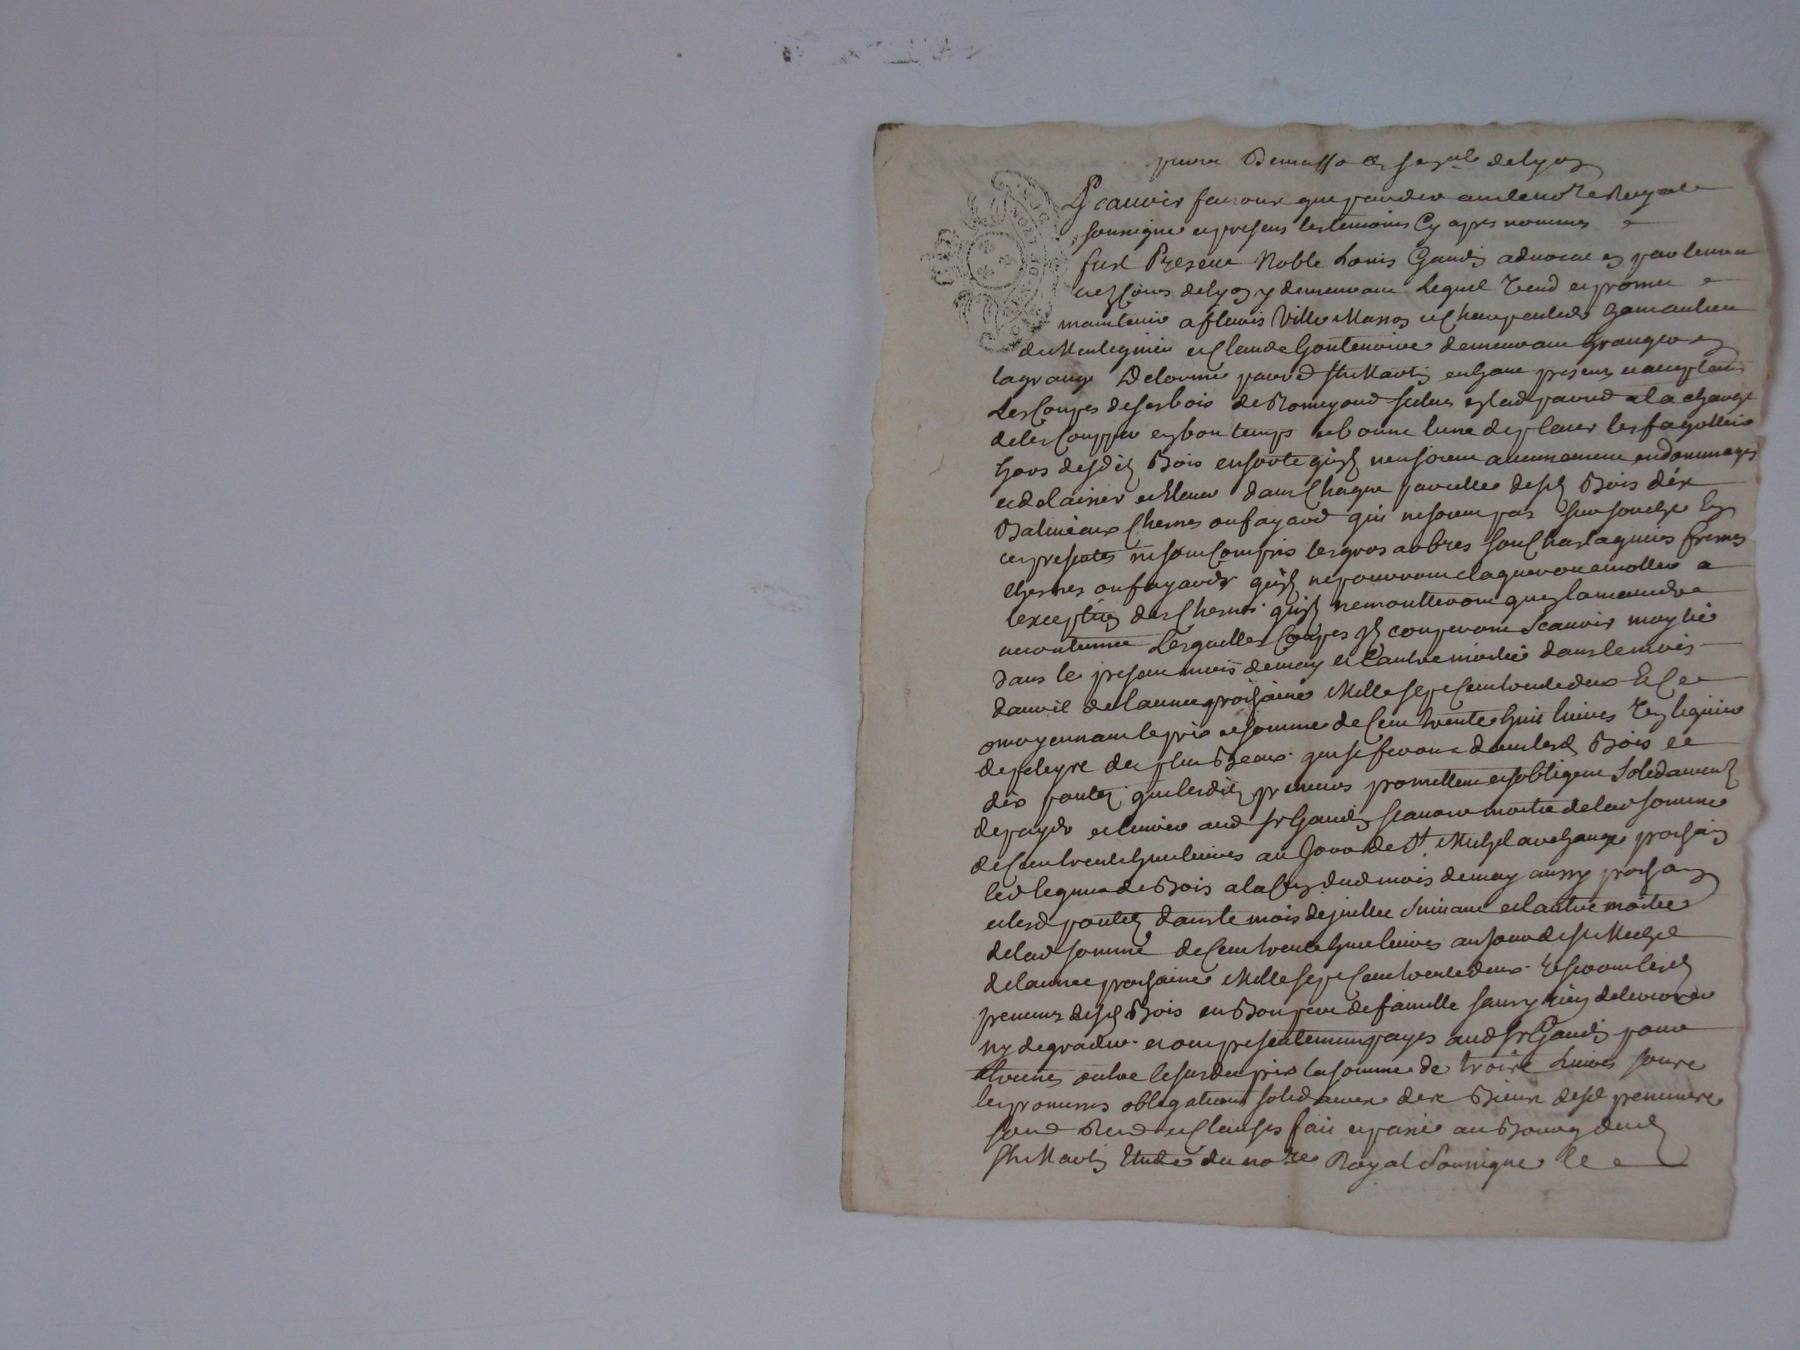 Scavoir faisons que pardevant le no.re Royal
soussigné et presens les temoins Cy apres nommes
fust Present Noble Louis Gaudin advocat en parlement
et ez Cours de Lyon y demeurant Lequel Vend et promet
maintenir a fleuris Ville Masson et
et Claude Gontenoire demeurant Granger en
la grange Delorme paroisse St Martin en haut presens et acceptants
Les Coupes de ses bois de Romigoud scitues en lad parroisse a la charge
de les Coupper en bon temps et bonne lune deplacer les fagottiers
hors desdits Bois en sorte qu'ils n'en soient aucunement endommagés
et de laisser et dans Chaque parcelle desd Bois dix
Baliveaux Chesnes ou fayard qui ne soient pas sur souche En
ces presentes ne sont Compris les gros arbres soit Chastagniers fresnes
Chesnes ou fayards qu'ils ne pourront elaguer ou emotter a
l'exception des Chesnes qu'ils n'emotteront que en la maniere
accoutumée Lesquelles Coupes ils couperont Scavoir moytié
dans le present mois de may et l'autre moitié dans le mois
d'avril de l'année prochaine Mille sept Cent trente deux Et Ce
moyennant le prix et somme de Cent trente huit livres
des plus Beaux qui se feront dans lesd Bois et
dix poulets que lesdits preneurs promettent et s'obligent Solidairement
de payer et livrer aud Sr Gaudin scavoir moitié de lad somme
de Cent trente huit livres au Jour de St Michel archange prochain
de Bois a la fin dud mois de may aussy prochain
et lesd poulets dans le mois de juillet Suivant et l'autre moitié
de lad somme de Cent trente huit livres au Jour de St Michel
de l'année prochaine Mille sept Cent trente deux lesd
preneurs desd Bois en Bon pere de famille sans y rien deteriorer
ny degrader et ont presentement payés aud Sr Gaudin pour
etrennes outre le susdit prix la somme de trois Livres sous
les promesses obligations solidaires des Biens desd preneurs
et Clauses fait et passé au Bourg dud
St Martin Etude du no.re Royal Soussigné le